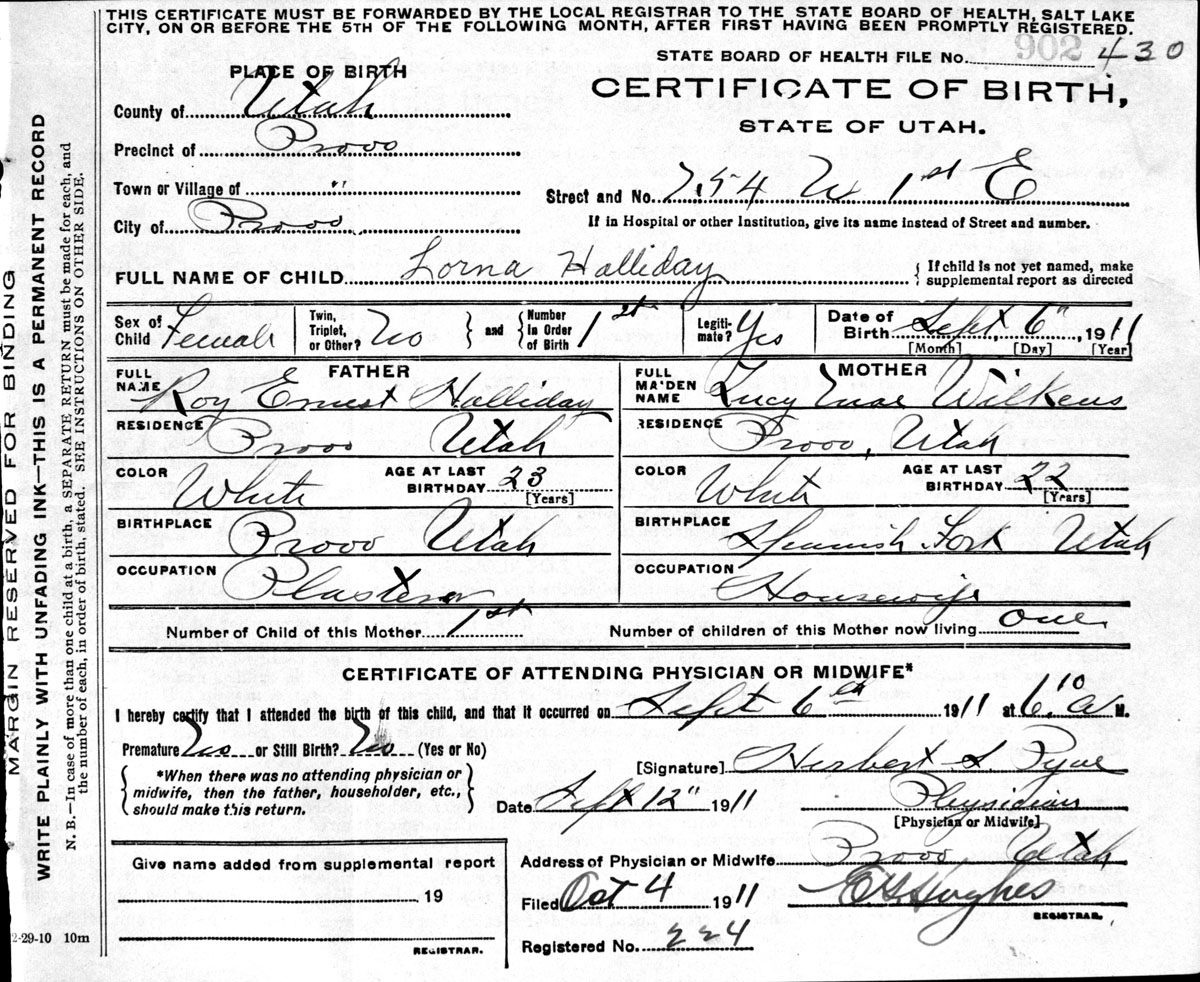 THIS CERTIFICATE MUST BE FORWARDED BY THE LOCAL REGISTRAR TO THE STATE BOARD OF HEALTH, SALT LAKE
CITY, ON OR BEFORE THE 5TH OF THE FOLLOWING MONTH, AFTER FIRST HAVING BEEN PROMPTLY REGISTERED.
STATE BOARD OF HEALTH FILE No. 902 430
PLACE OF BIRTH
CERTIFICATE OF BIRTH,
STATE OF UTAH.
County of Utah
Precinct of Provo
Town or Village of "
Street and No. 754 W 1st E
City of Provo
If in Hospital or other Institution, give its name instead of Street and number.
FULL NAME OF CHILD Lorna Halliday { If child is not yet named, make
supplemental report as directed
Sex of Child Female Twin, Triplet, or Other? No } and { Number in Order of Birth 1st Legiti-mate? Yes Date of Birth Sept 6", 1911
[Month] [Day] [Year]
FATHER
FULL NAME Roy Ernest Halliday
RESIDENCE Provo Utah
COLOR White AGE AT LAST BIRTHDAY 23 [Years]
BIRTHPLACE Provo Utah
OCCUPATION Plasterer
MOTHER
FULL MAIDEN NAME Lucy Mae Wilkens
RESIDENCE Provo, Utah
COLOR White AGE AT LAST BIRTHDAY 22 [Years]
BIRTHPLACE Spanish Fork Utah
OCCUPATION Housewife
Number of Child of this Mother 1st Number of children of this Mother now living one
CERTIFICATE OF ATTENDING PHYSICIAN OR MIDWIFE*
I hereby certify that I attended the birth of this child, and that it occurred on Sept 6th 1911 at 6.10 a M.
Premature No or Still Birth? No (Yes or No)
[Signature] Herbert S. Pyne
{ *When there was no attending physician or
midwife, then the father, householder, etc.,
should make this return. }
Date Sept 12" 1911 Physician
[Physician or Midwife]
Give name added from supplemental report
19
REGISTRAR.
Address of Physician or Midwife Provo, Utah
Filed Oct 4 1911 Hughes
REGISTRAR.
Registered No. 224
MARGIN RESERVED FOR BINDING
WRITE PLAINLY WITH UNFADING INK—THIS IS A PERMANENT RECORD
N. B.—In case of more than one child at a birth, a SEPARATE RETURN must be made for each, and
the number of each, in order of birth, stated. SEE INSTRUCTIONS ON OTHER SIDE.
2-29-10 10m